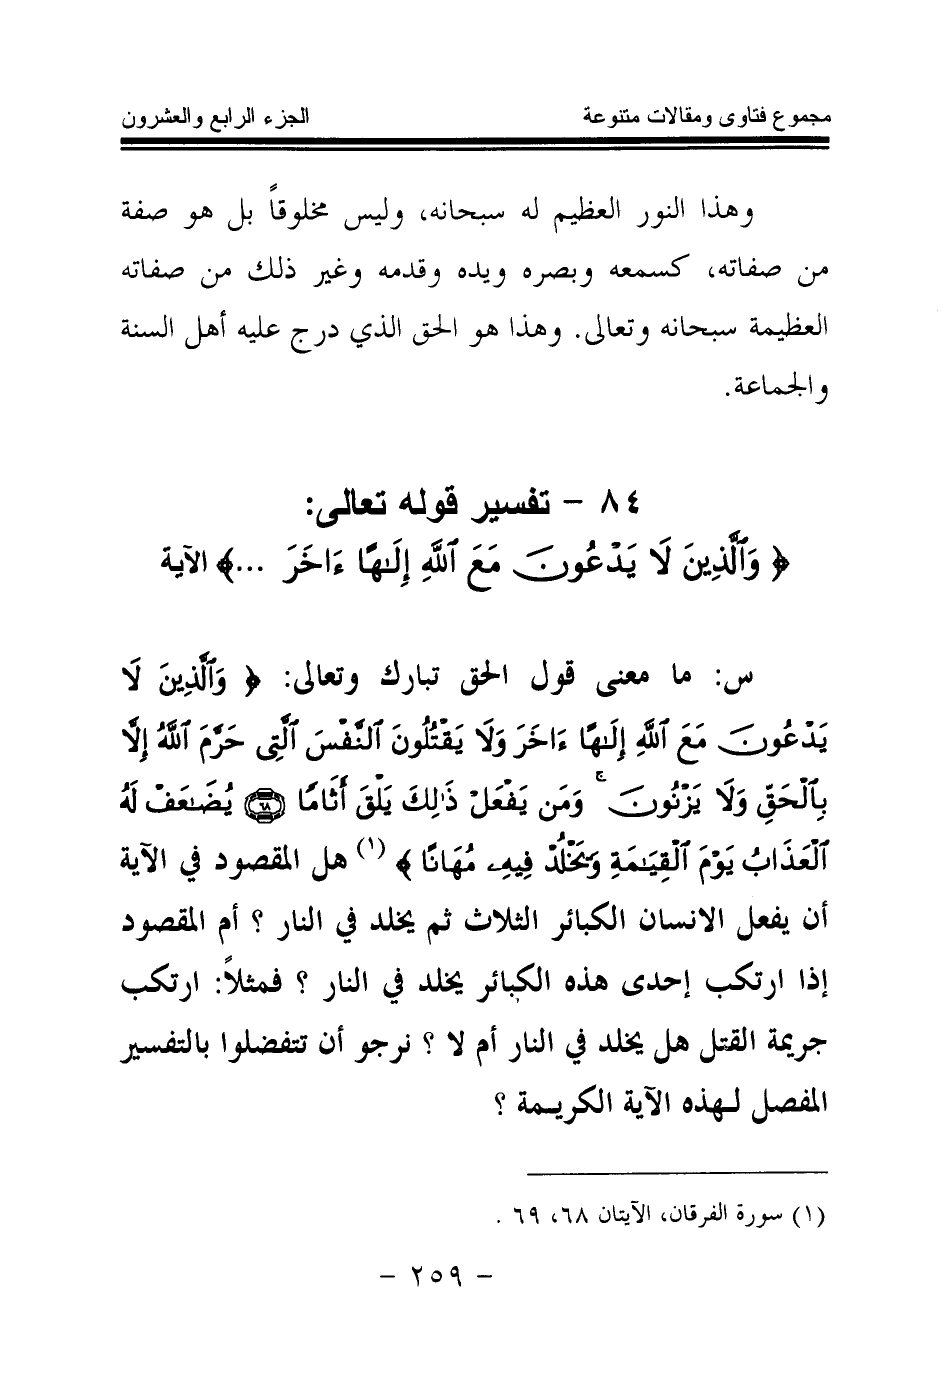 مجموع فتاوى ومقالات متنوعة الجزء الرابع والعشرون
وهذا النور العظيم له سبحانه، وليس مخلوقاً بل هو صفة
من صفاته، كسمعه وبصره ويده وقدمه وغير ذلك من صفاته
العظيمة سبحانه وتعالى. وهذا هو الحق الذي درج عليه أهل السنة
والجماعة.
٨٤ – تفسير قوله تعالى:
﴿ وَٱلَّذِينَ لَا يَدْعُونَ مَعَ ٱللَّهِ إِلَـٰهًا ءَاخَرَ ...﴾ الآية
س: ما معنى قول الحق تبارك وتعالى: ﴿ وَٱلَّذِينَ لَا
يَدْعُونَ مَعَ ٱللَّهِ إِلَـٰهًا ءَاخَرَ وَلَا يَقْتُلُونَ ٱلنَّفْسَ ٱلَّتِى حَرَّمَ ٱللَّهُ إِلَّا
بِٱلْحَقِّ وَلَا يَزْنُونَ ۚ وَمَن يَفْعَلْ ذَٰلِكَ يَلْقَ أَثَامًا ۝٦٨ يُضَـٰعَفْ لَهُ
ٱلْعَذَابُ يَوْمَ ٱلْقِيَـٰمَةِ وَيَخْلُدْ فِيهِۦ مُهَانًا ﴾ (١) هل المقصود في الآية
أن يفعل الانسان الكبائر الثلاث ثم يخلد في النار ؟ أم المقصود
إذا ارتكب إحدى هذه الكبائر يخلد في النار ؟ فمثلاً: ارتكب
جريمة القتل هل يخلد في النار أم لا ؟ نرجو أن تتفضلوا بالتفسير
المفصل لهذه الآية الكريمة ؟
(١) سورة الفرقان، الآيتان ٦٨، ٦٩ .
– ٢٥٩ –